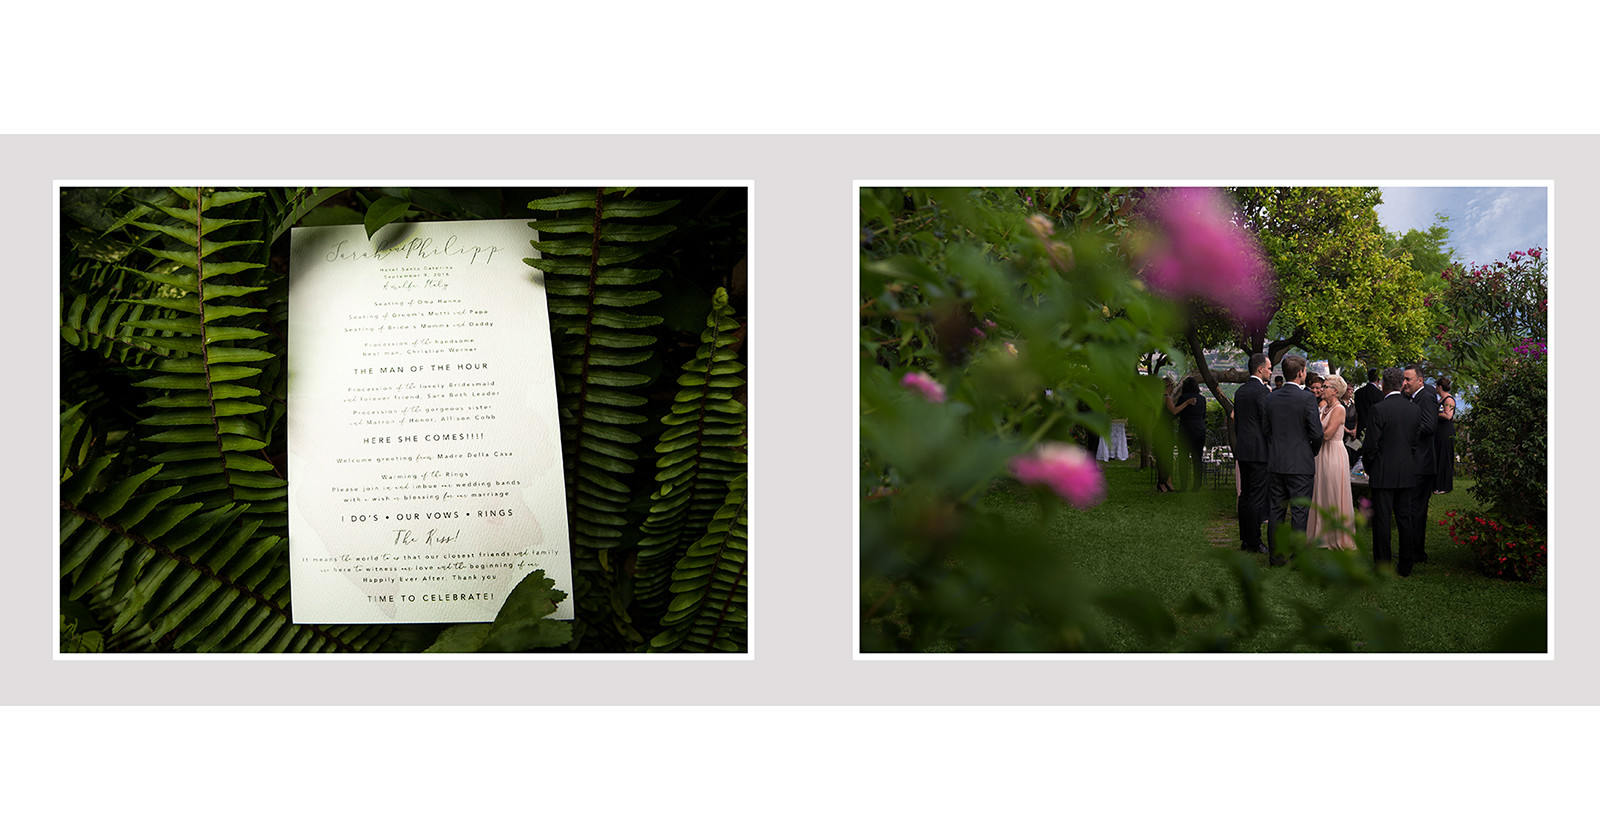 Sarah and Philipp
Hotel Santa Caterina
September 9, 2016
Amalfi Italy
Seating of Oma Hanna
Seating of Groom's Mutti and Papa
Seating of Bride's Momma and Daddy
Procession of the handsome
best man, Christian Werner
THE MAN OF THE HOUR
Procession of the lovely Bridesmaid
and forever friend, Sara Beth Leader
Procession of the gorgeous sister
and Matron of Honor, Allison Cobb
HERE SHE COMES!!!!
Welcome greeting from Madre Della Casa
Warming of the Rings
Please join in and imbue our wedding bands
with a wish or blessing for our marriage
I DO'S • OUR VOWS • RINGS
The Kiss!
It means the world to us that our closest friends and family
are here to witness our love and the beginning of our
Happily Ever After. Thank you
TIME TO CELEBRATE!